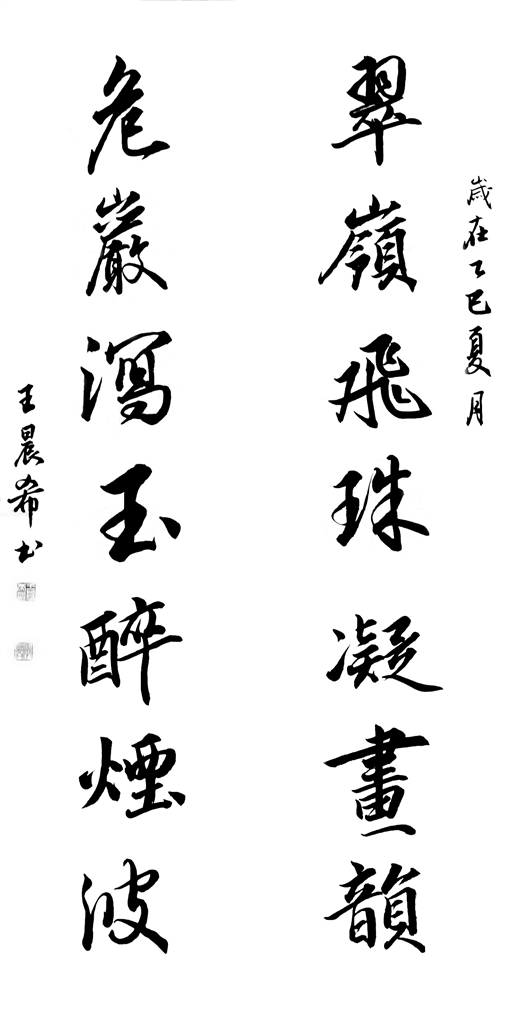 歲在乙巳夏月
翠嶺飛珠凝畫韻
危巖瀉玉醉煙波
王晨希書